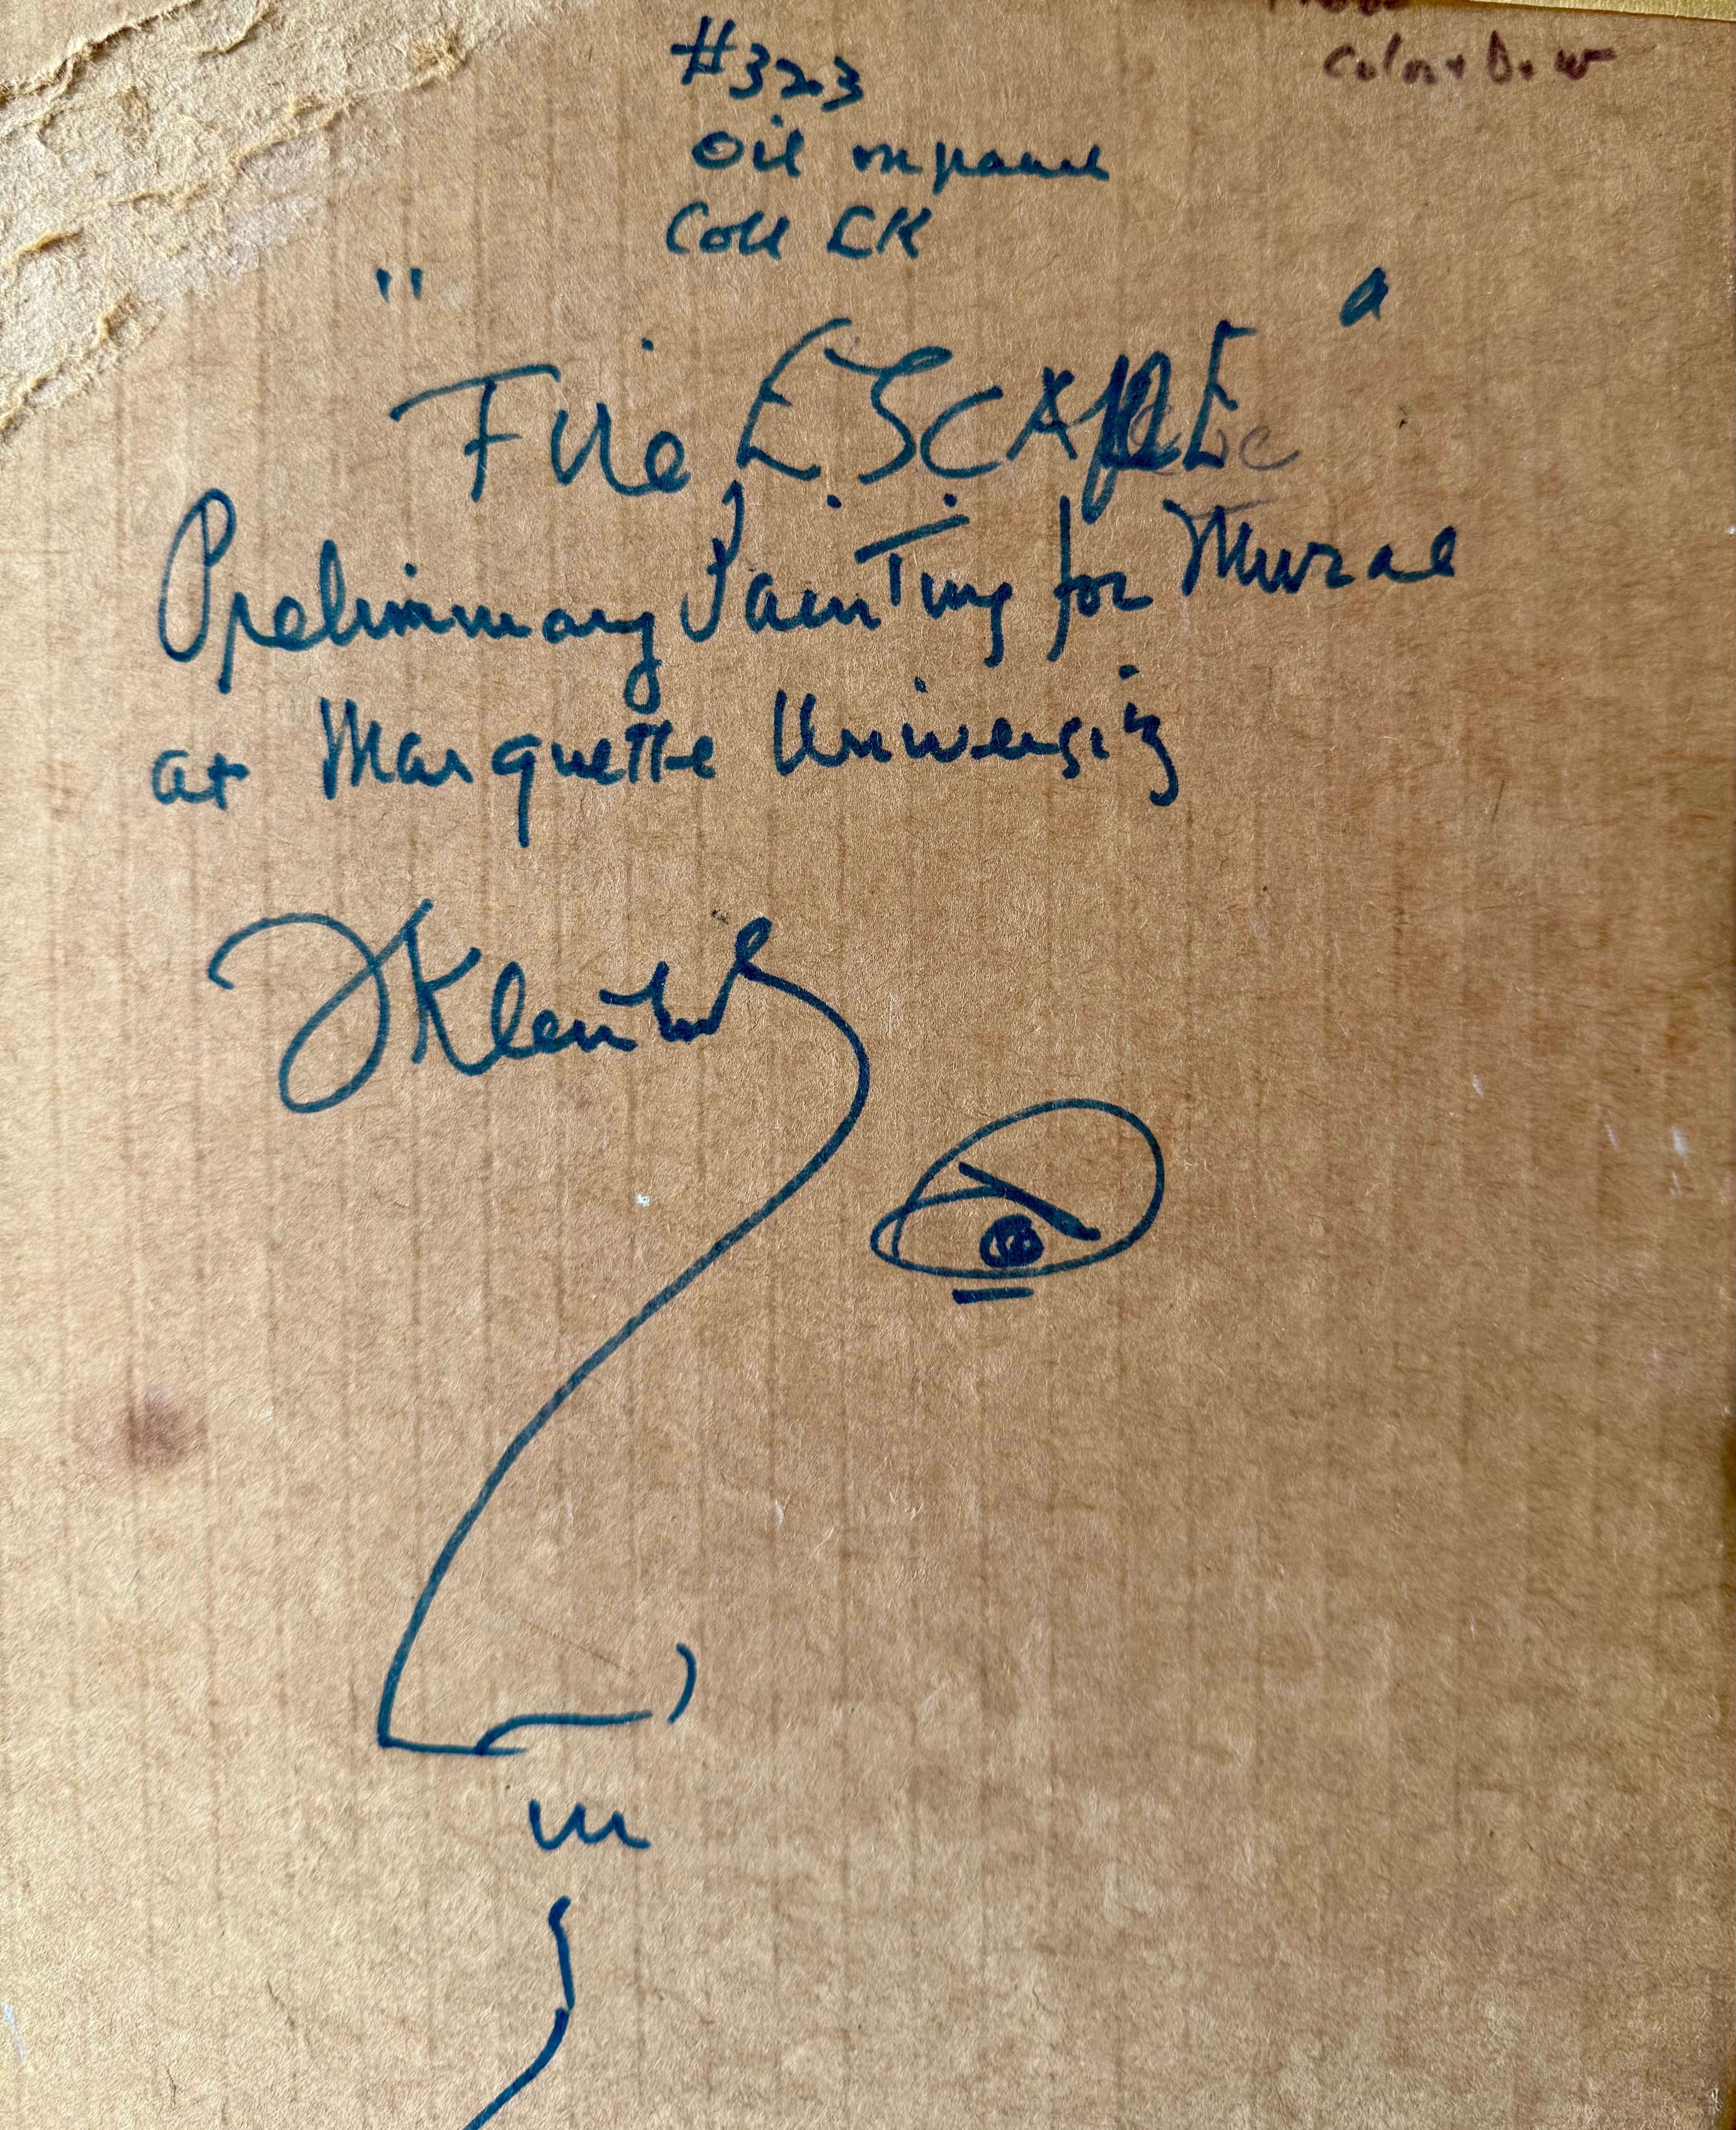 #323
Color + B + W
Oil on panel
Coll LK
"Fire ESCAPE"
Preliminary Painting for Mural
at Marquette University